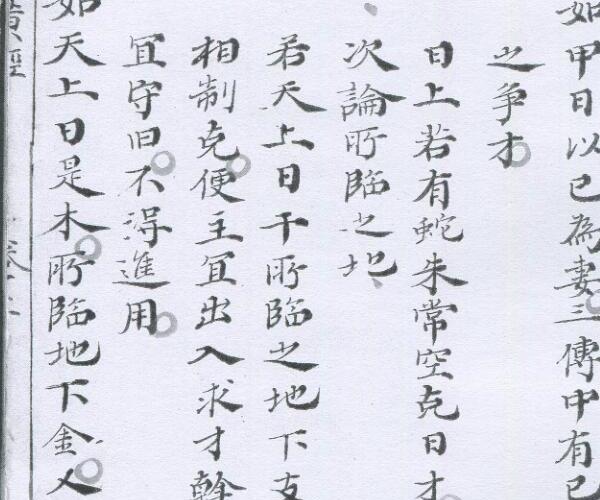 如甲日以己為妻三傳中有己
之爭才
日上若有蛇朱常空克日才
次論所臨之地
若天上日干所臨之地下支
相制克便主冝出入求才幹
冝守旧不淂進用
如天上日是木所臨地下金人